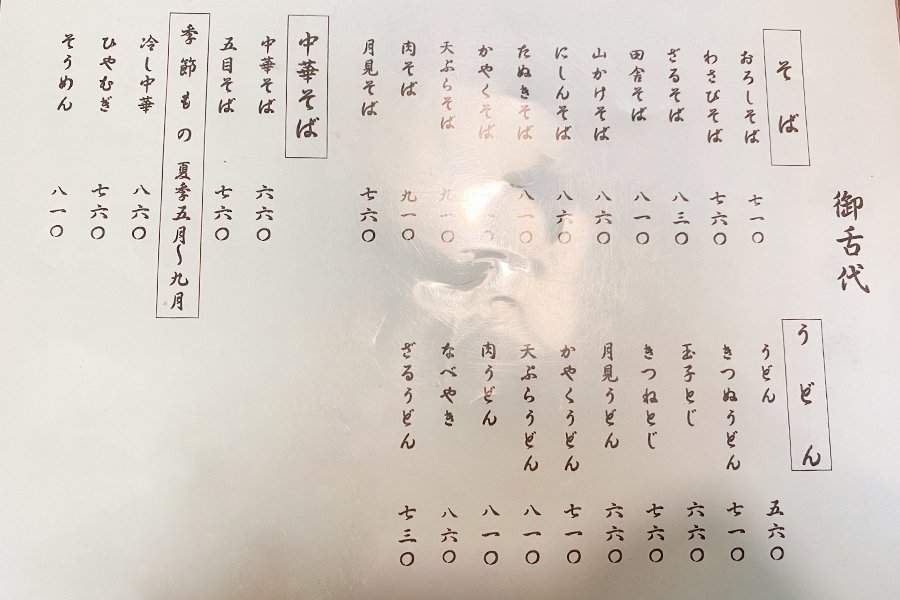 御舌代
そば
おろしそば 七一〇
わさびそば 七六〇
ざるそば 八三〇
田舎そば 八一〇
山かけそば 八六〇
にしんそば 八六〇
たぬきそば 八一〇
かやくそば
天ぷらそば 九一〇
肉そば 九一〇
月見そば 七六〇
中華そば
中華そば 六六〇
五目そば 七六〇
季節もの 夏季五月～九月
冷し中華 八六〇
ひやむぎ 七六〇
そうめん 八一〇
うどん
うどん 五六〇
きつぬうどん 七一〇
玉子とじ 六六〇
きつねとじ 七六〇
月見うどん 六六〇
かやくうどん 七一〇
天ぷらうどん 八一〇
肉うどん 八一〇
なべやき 八六〇
ざるうどん 七三〇